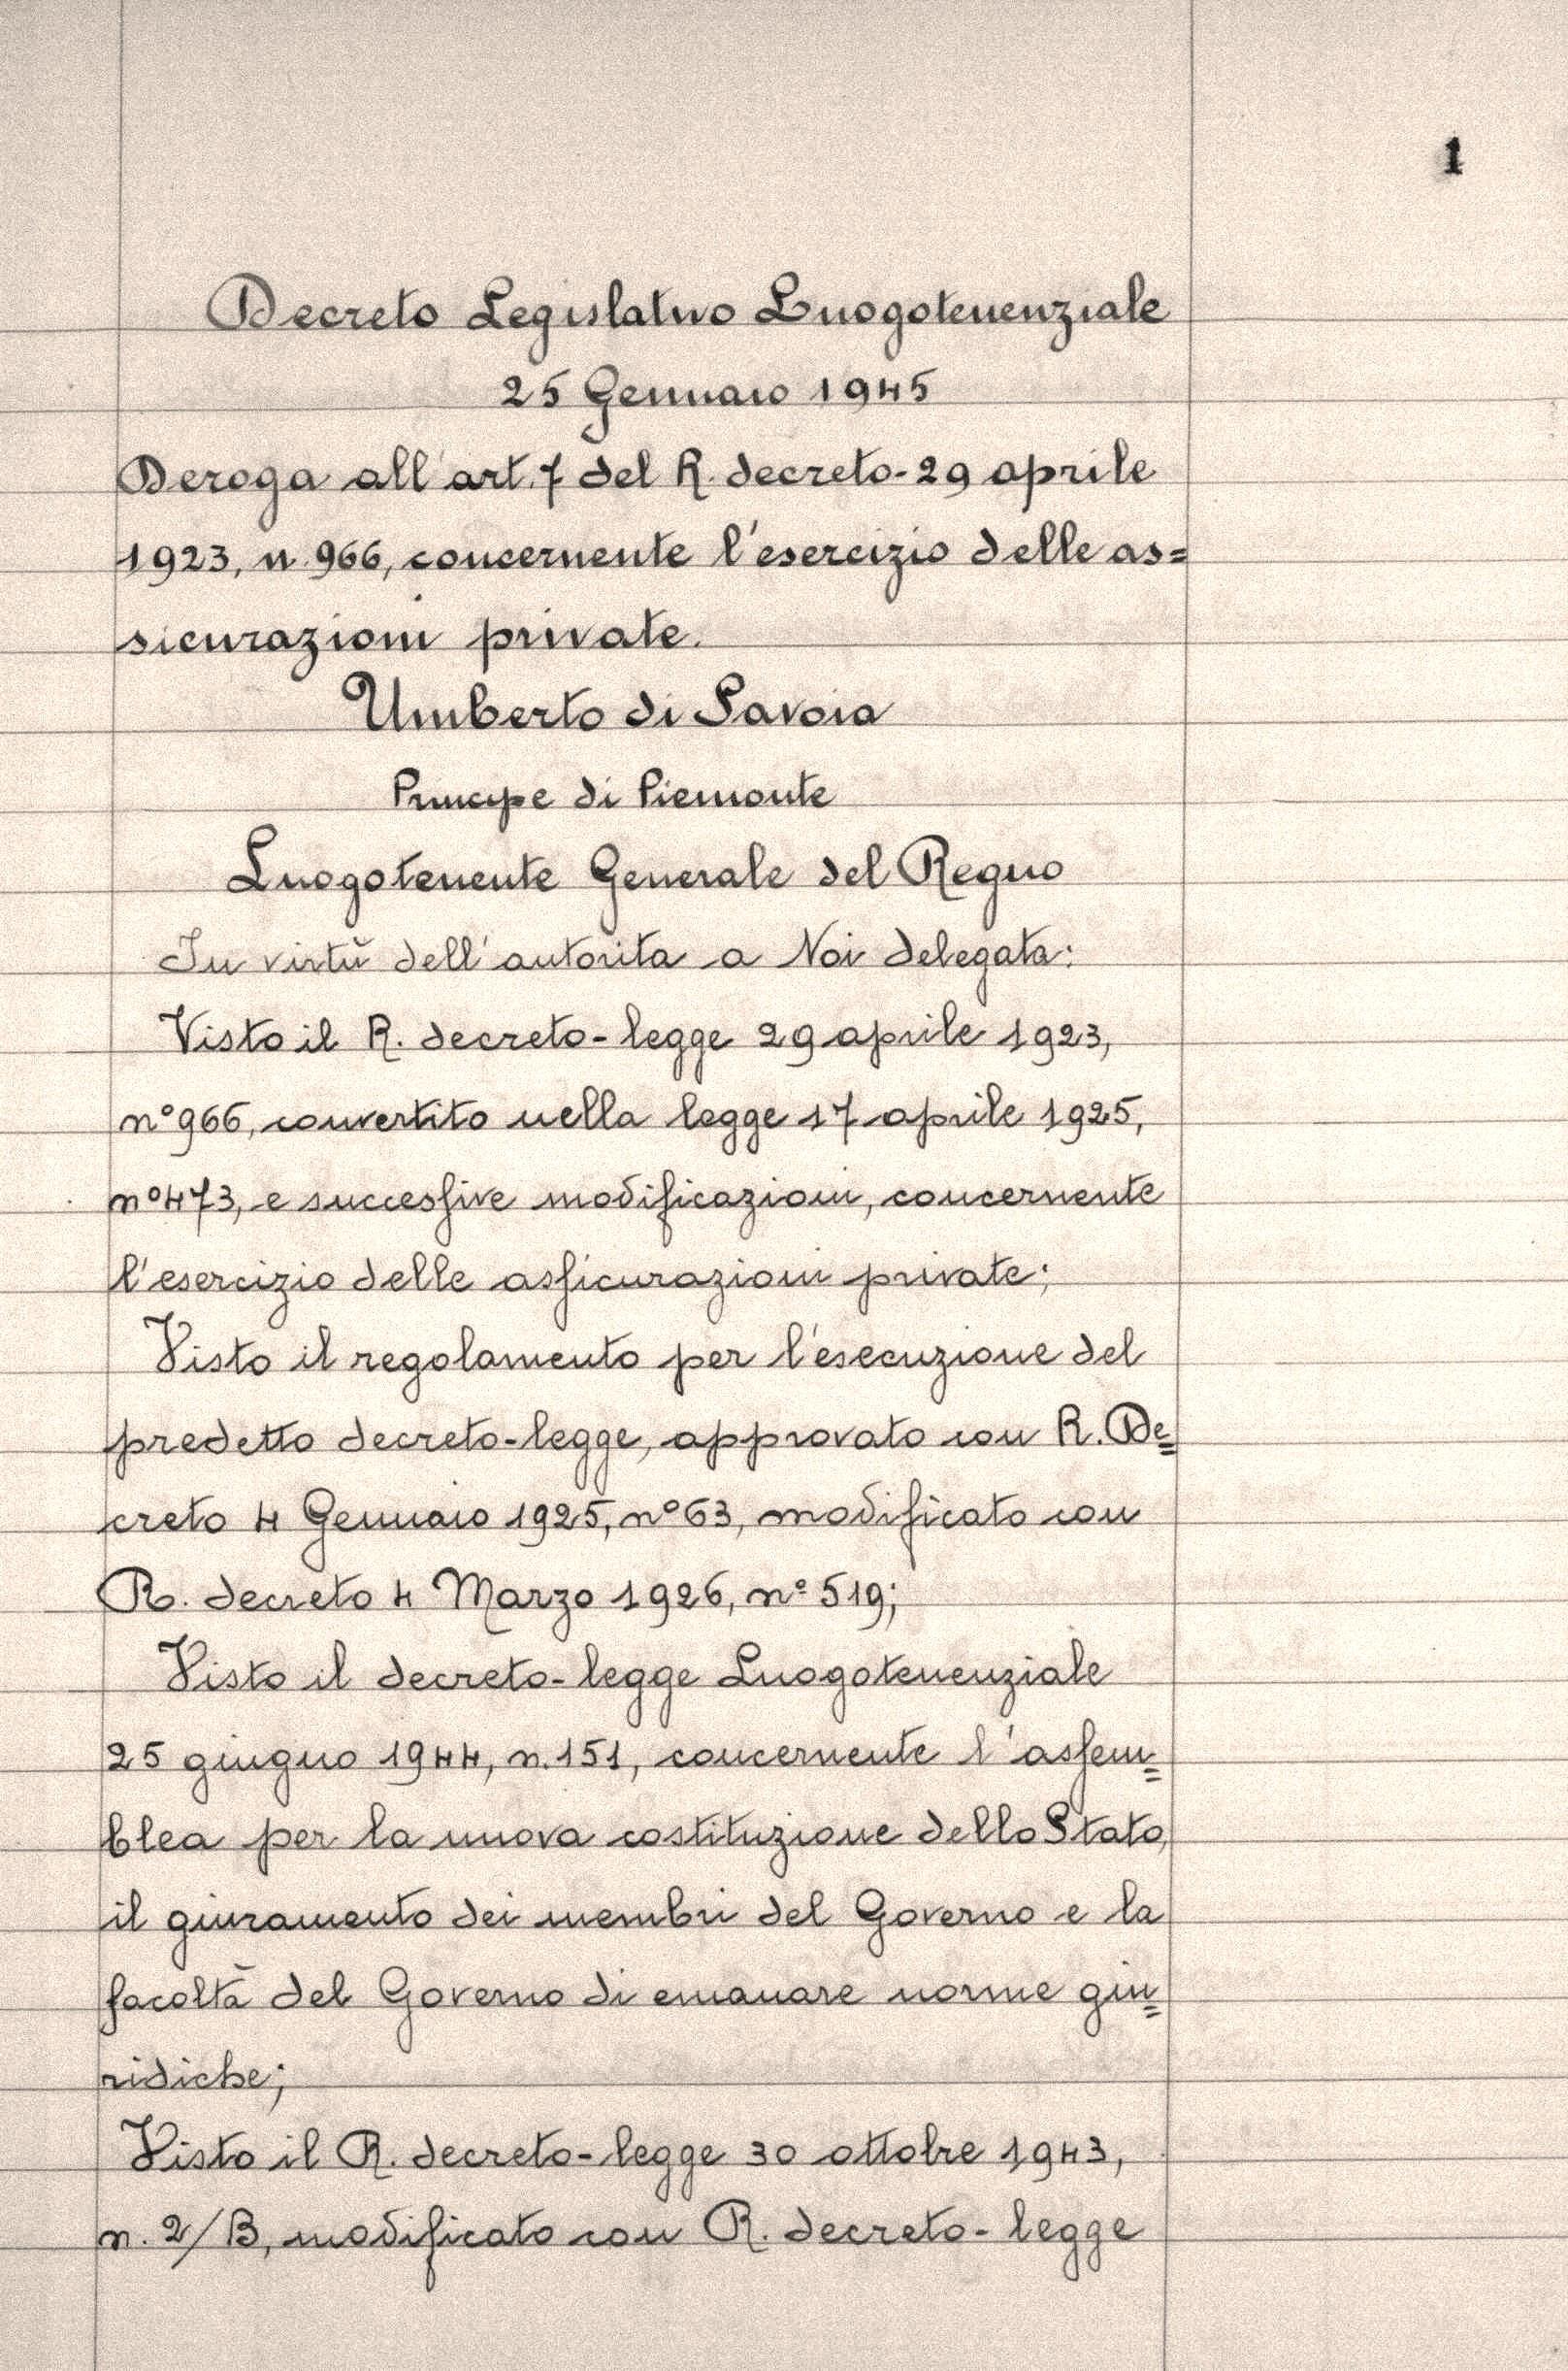 1
Decreto Legislativo Luogotenenziale
25 Gennaio 1945
Deroga all'art. 7 del R. decreto-29 aprile
1923, n. 966, concernente l'esercizio delle as=
sicurazioni private.
Umberto di Savoia
Principe di Piemonte
Luogotenente Generale del Regno
In virtù dell'autorita a Noi delegata:
Visto il R. decreto-legge 29 aprile 1923,
n° 966, convertito nella legge 17 aprile 1925,
n° 473, e successive modificazioni, concernente
l'esercizio delle assicurazioni private;
Visto il regolamento per l'esecuzione del
predetto decreto-legge, approvato con R. De=
creto 4 Gennaio 1925, n° 63, modificato con
R. decreto 4 Marzo 1926, n° 519;
Visto il decreto-legge Luogotenenziale
25 giugno 1944, n. 151, concernente l'assem=
blea per la nuova costituzione dello Stato,
il giuramento dei membri del Governo e la
facoltà del Governo di emanare norme giu=
ridiche;
Visto il R. decreto-legge 30 ottobre 1943,
n. 2/B, modificato con R. decreto-legge